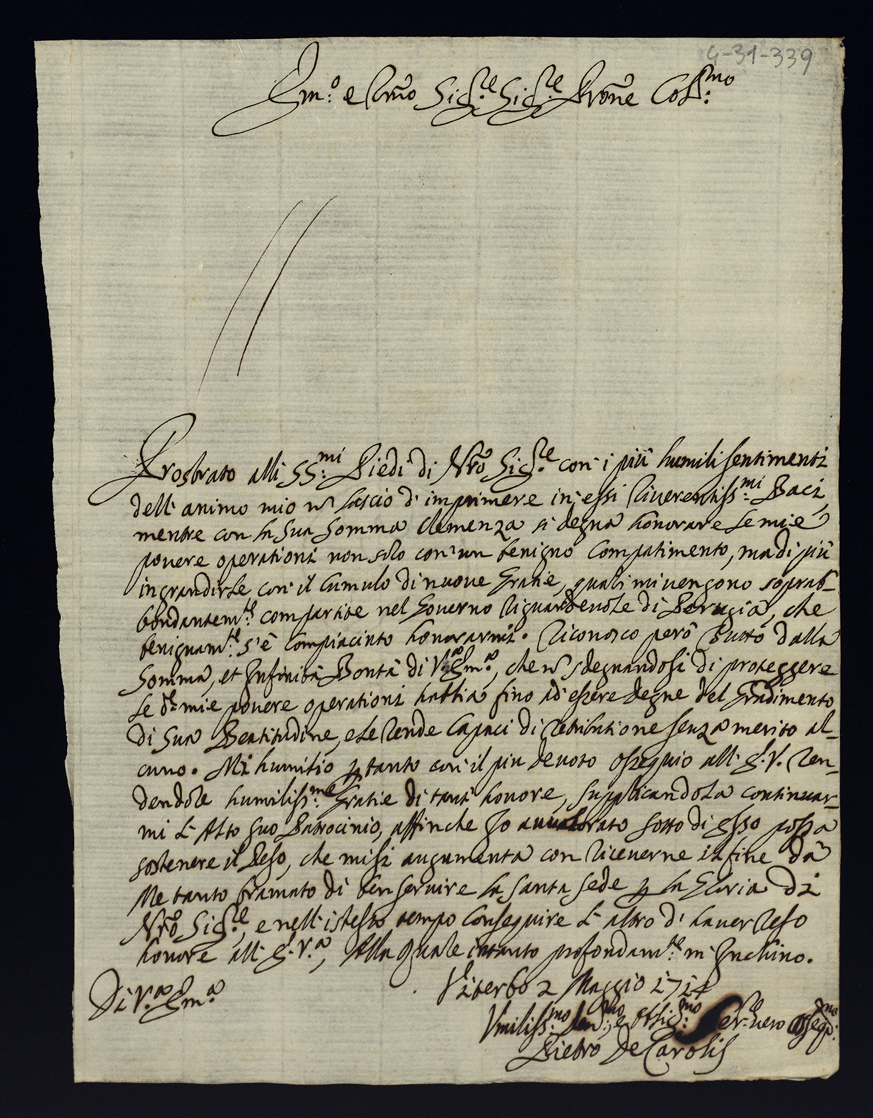 4-31-339
Em.º e Rmo Sig.re Sig.re Prone Col.mo
Prostrato alli SS.mi Piedi di Nro Sig.re con i più humili sentimenti
dell'animo mio nō lascio d'imprimere in essi riverentiss.mi Baci,
mentre con la Sua Somma Clemenza si degna honorare le mie
povere operationi non solo con un benigno Compatimento, ma di più
ingrandirle con il Cumulo di nuove Gratie, quali mi vengono soprab-
bondantem.te compartite nel Governo riguardevole di Perugia, che
benignam.te s'è compiaciuto honorarmi. Riconosco però tutto dalla
Somma, et Infinita Bontà di V.ra Em.a, che nō sdegnandosi di proteggere
le d.e mie povere operationi habbia fino ad essere degne del Gradimento
di Sua Beatitudine, e le rende Capaci di retributione senza merito al-
cuno. Mi humilio p tanto con il più devoto ossequio all'E.V. ren-
dendole humiliss.me Gratie di tant'honore, supplicandola continuar-
mi l'Alto suo Patrocinio, affinche Io avvalorato sotto di esso possa
sostenere il Peso, che mi si augumenta con riceverne infine da
Me tanto bramato di ben servire la Santa Sede p la Gloria di
Nro Sig.re, e nell'istesso tempo conseguire l'altro d'haver reso
honore all'E.V.a, Alla quale intanto profondam.te m'Inchino.
Di V.a Em.a
Viterbo 2 Maggio
Umiliss.mo Dev.mo e Obblig.mo Ser.re vero Osseq.mo
Pietro De Carolis